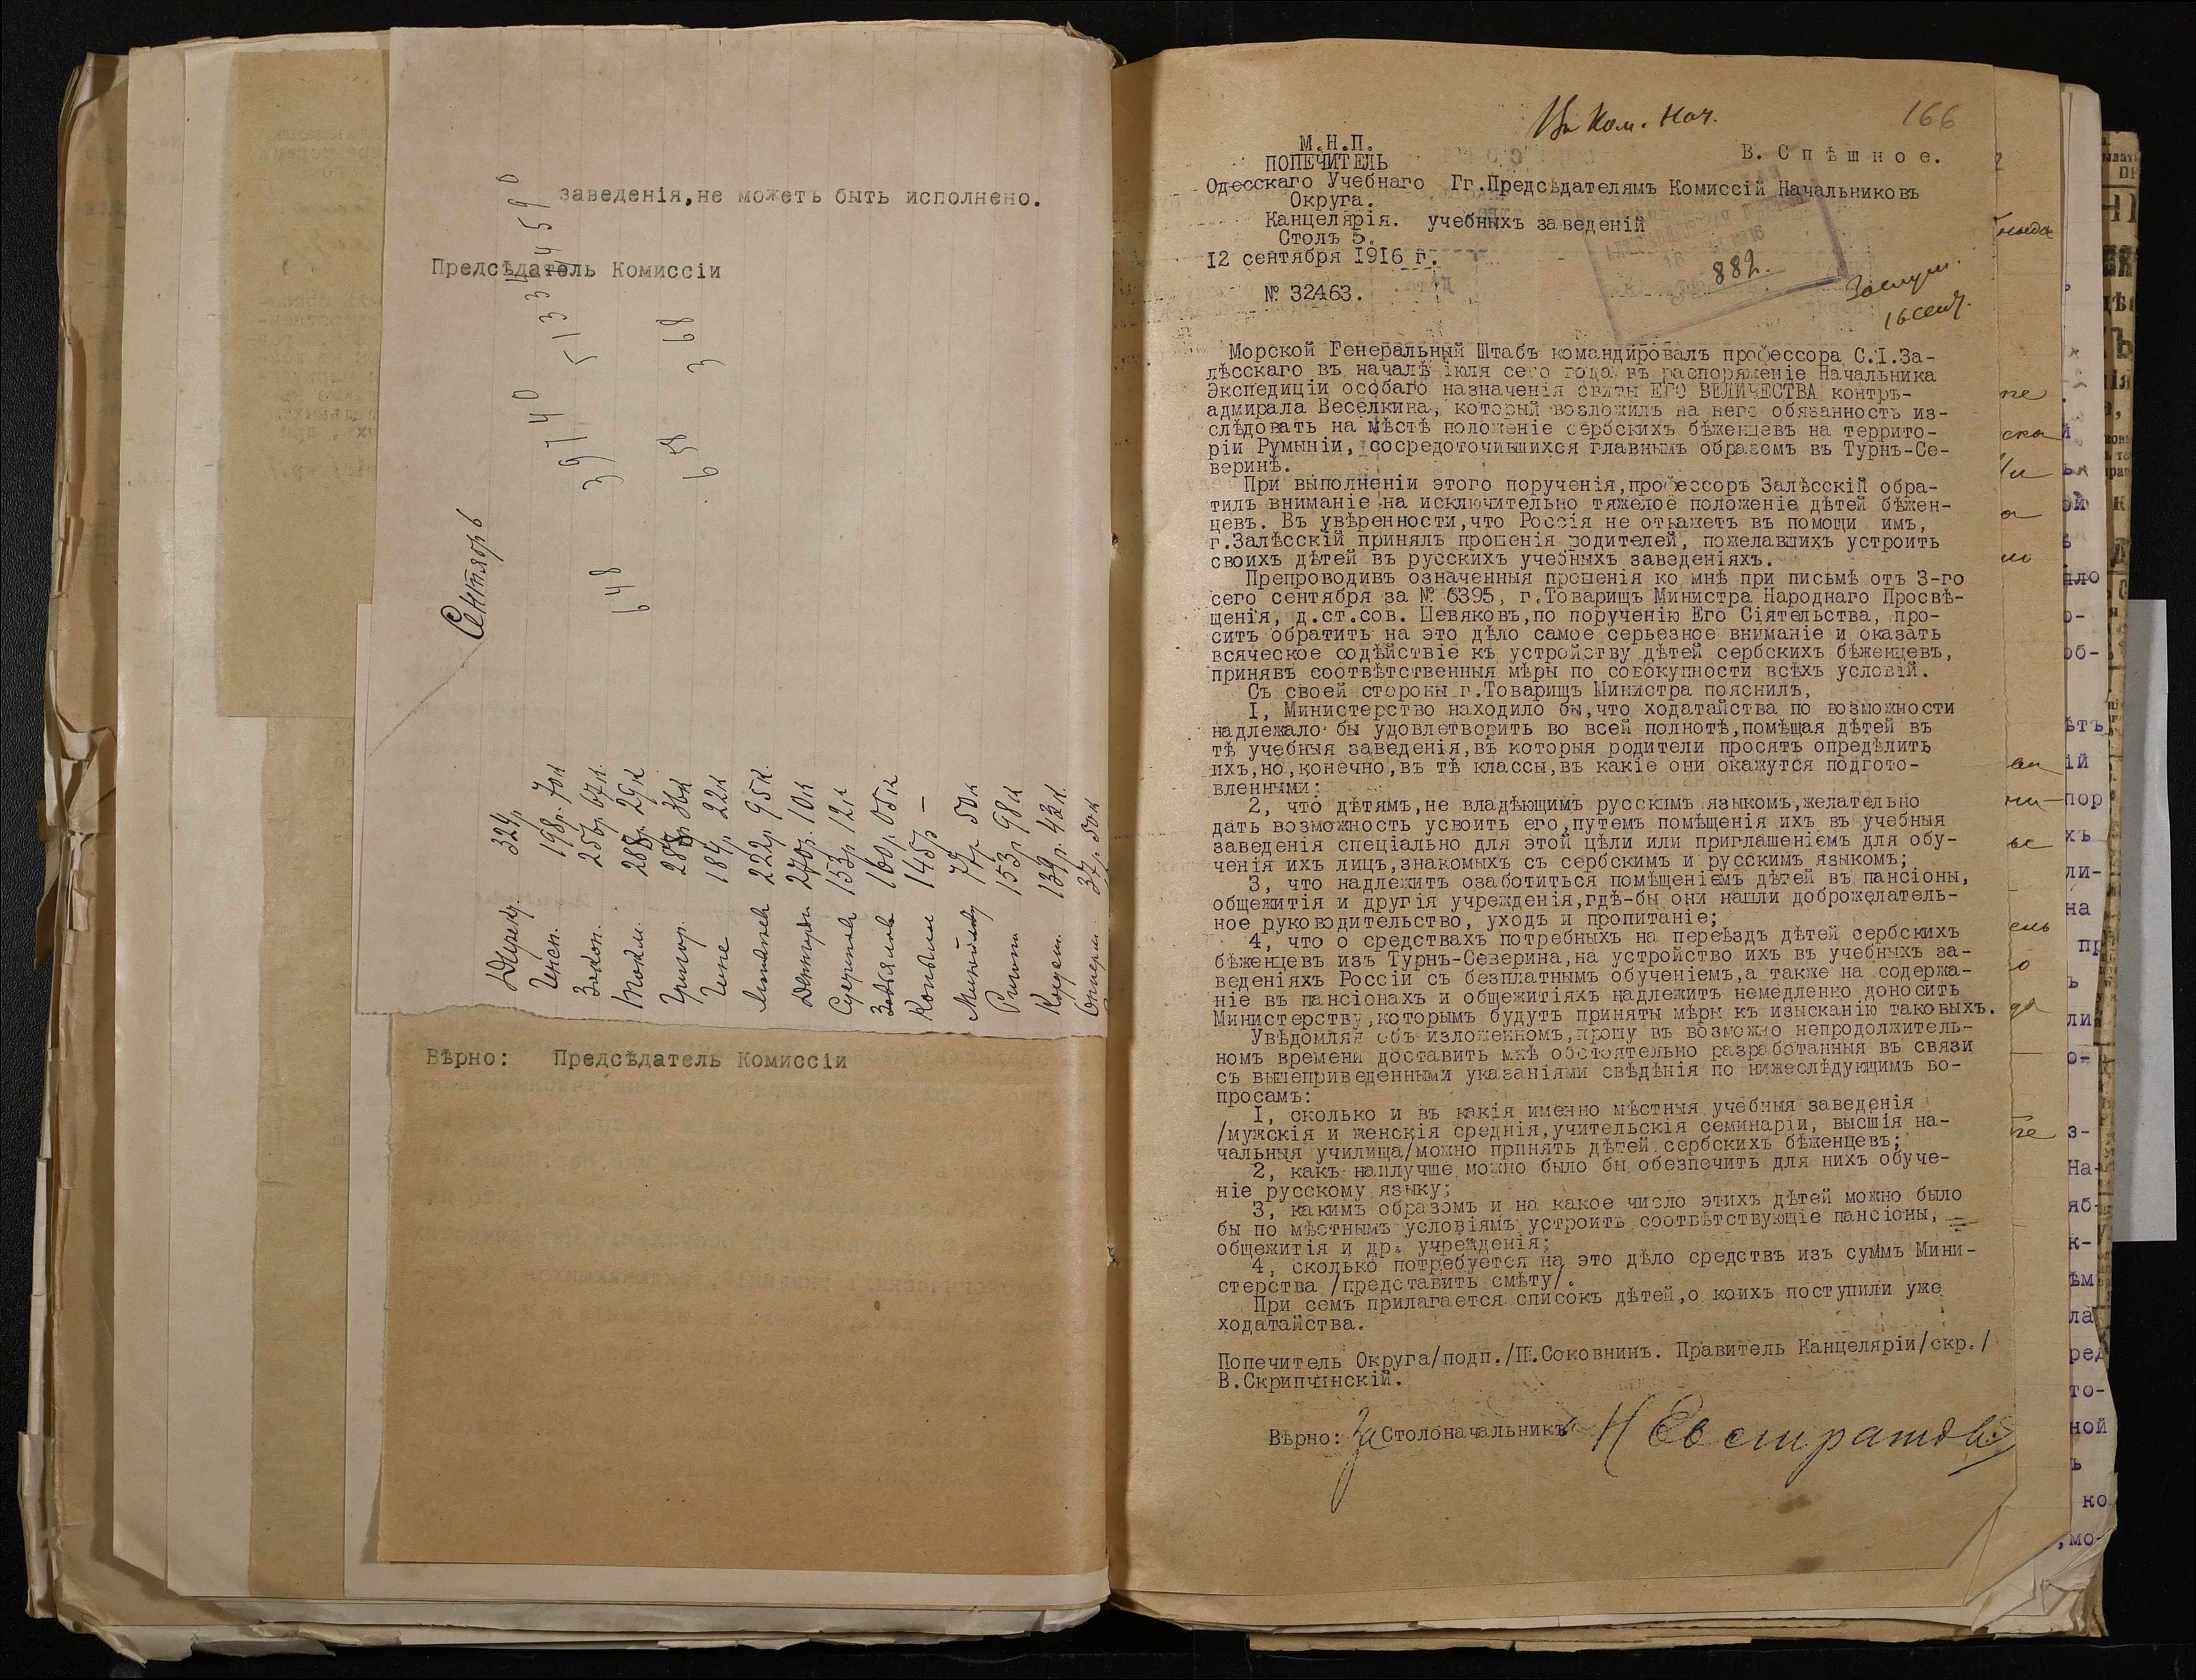 заведенія,не можетъ быть исполнено.
Предсѣдатель Комиссіи
Сентябрь
648 3940 51334 4590
654 368
324р.
Инсп. 198р. 70к
Закон. 256р. 67к.
288р. 29к
Григор.
184р. 22к
222р. 95к.
270р. 10к
153р. 12к
160р. 05к
145р —
77р. 50к
153р 98к
139р. 43к.
37р. 50к
Вѣрно: Предсѣдатель Комиссіи
Въ Ком. Нач.
166
М.Н.П.
ПОПЕЧИТЕЛЬ
Одесскаго Учебнаго
Округа.
Канцелярія.
Столъ 5.
12 сентября 1916 г.
№ 32463.
В. Спѣшное.
Гг.Предсѣдателямъ Комиссій Начальниковъ
учебныхъ заведеній
882.
16 сент.
Морской Генеральный Штабъ командировалъ профессора С.І.За-
лѣсскаго въ началѣ іюля сего года въ распоряженіе Начальника
Экспедиціи особаго назначенія свиты ЕГО ВЕЛИЧЕСТВА контръ-
адмирала Веселкина, который возложилъ на него обязанность из-
слѣдовать на мѣстѣ положеніе сербскихъ бѣженцевъ на террито-
ріи Румыніи, сосредоточившихся главнымъ образомъ въ Турнъ-Се-
веринѣ.
При выполненіи этого порученія,профессоръ Залѣсскій обра-
тилъ вниманіе на исключительно тяжелое положеніе дѣтей бѣжен-
цевъ. Въ увѣренности,что Россія не откажетъ въ помощи имъ,
г.Залѣсскій принялъ прошенія родителей, пожелавшихъ устроить
своихъ дѣтей въ русскихъ учебныхъ заведеніяхъ.
Препроводивъ означенныя прошенія ко мнѣ при письмѣ отъ 3-го
сего сентября за № 6395, г.Товарищъ Министра Народнаго Просвѣ-
щенія, д.ст.сов. Шевяковъ,по порученію Его Сіятельства, про-
ситъ обратить на это дѣло самое серьезное вниманіе и оказать
всяческое содѣйствіе къ устройству дѣтей сербскихъ бѣженцевъ,
принявъ соотвѣтственныя мѣры по совокупности всѣхъ условій.
Съ своей стороны г.Товарищъ Министра пояснилъ,
I, Министерство находило бы,что ходатайства по возможности
надлежало бы удовлетворить во всей полнотѣ,помѣщая дѣтей въ
тѣ учебныя заведенія,въ которыя родители просятъ опредѣлить
ихъ,но,конечно,въ тѣ классы,въ какіе они окажутся подгото-
вленными:
2, что дѣтямъ,не владѣющимъ русскимъ языкомъ,желательно
дать возможность усвоить его,путемъ помѣщенія ихъ въ учебныя
заведенія спеціально для этой цѣли или приглашеніемъ для обу-
ченія ихъ лицъ,знакомыхъ съ сербскимъ и русскимъ языкомъ;
3, что надлежитъ озаботиться помѣщеніемъ дѣтей въ пансіоны,
общежитія и другія учрежденія,гдѣ-бы они нашли доброжелатель-
ное руководительство, уходъ и пропитаніе;
4, что о средствахъ потребныхъ на переѣздъ дѣтей сербскихъ
бѣженцевъ изъ Турнъ-Северина,на устройство ихъ въ учебныхъ за-
веденіяхъ Россіи съ безплатнымъ обученіемъ,а также на содержа-
ніе въ пансіонахъ и общежитіяхъ надлежитъ немедленно доносить
Министерству,которымъ будутъ приняты мѣры къ изысканію таковыхъ.
Увѣдомляя объ изложенномъ,прошу въ возможно непродолжитель-
номъ времени доставить мнѣ обстоятельно разработанныя въ связи
съ вышеприведенными указаніями свѣдѣнія по нижеслѣдующимъ во-
просамъ:
I, сколько и въ какія именно мѣстныя учебныя заведенія
/мужскія и женскія среднія,учительскія семинаріи, высшія на-
чальныя училища/можно принять дѣтей сербскихъ бѣженцевъ;
2, какъ наилучше можно было бы обезпечить для нихъ обуче-
ніе русскому языку;
3, какимъ образомъ и на какое число этихъ дѣтей можно было
бы по мѣстнымъ условіямъ устроить соотвѣтствующіе пансіоны,
общежитія и др. учрежденія;
4, сколько потребуется на это дѣло средствъ изъ суммъ Мини-
стерства /представить смѣту/.
При семъ прилагается списокъ дѣтей,о коихъ поступили уже
ходатайства.
Попечитель Округа/подп./П.Соковнинъ. Правитель Канцеляріи/скр./
В.Скрипчинскій.
Вѣрно: За Столоначальника Н Евстратовъ